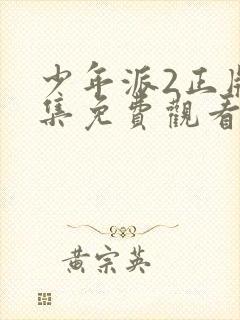 少年派2正片
集免費觀看
黃宗英